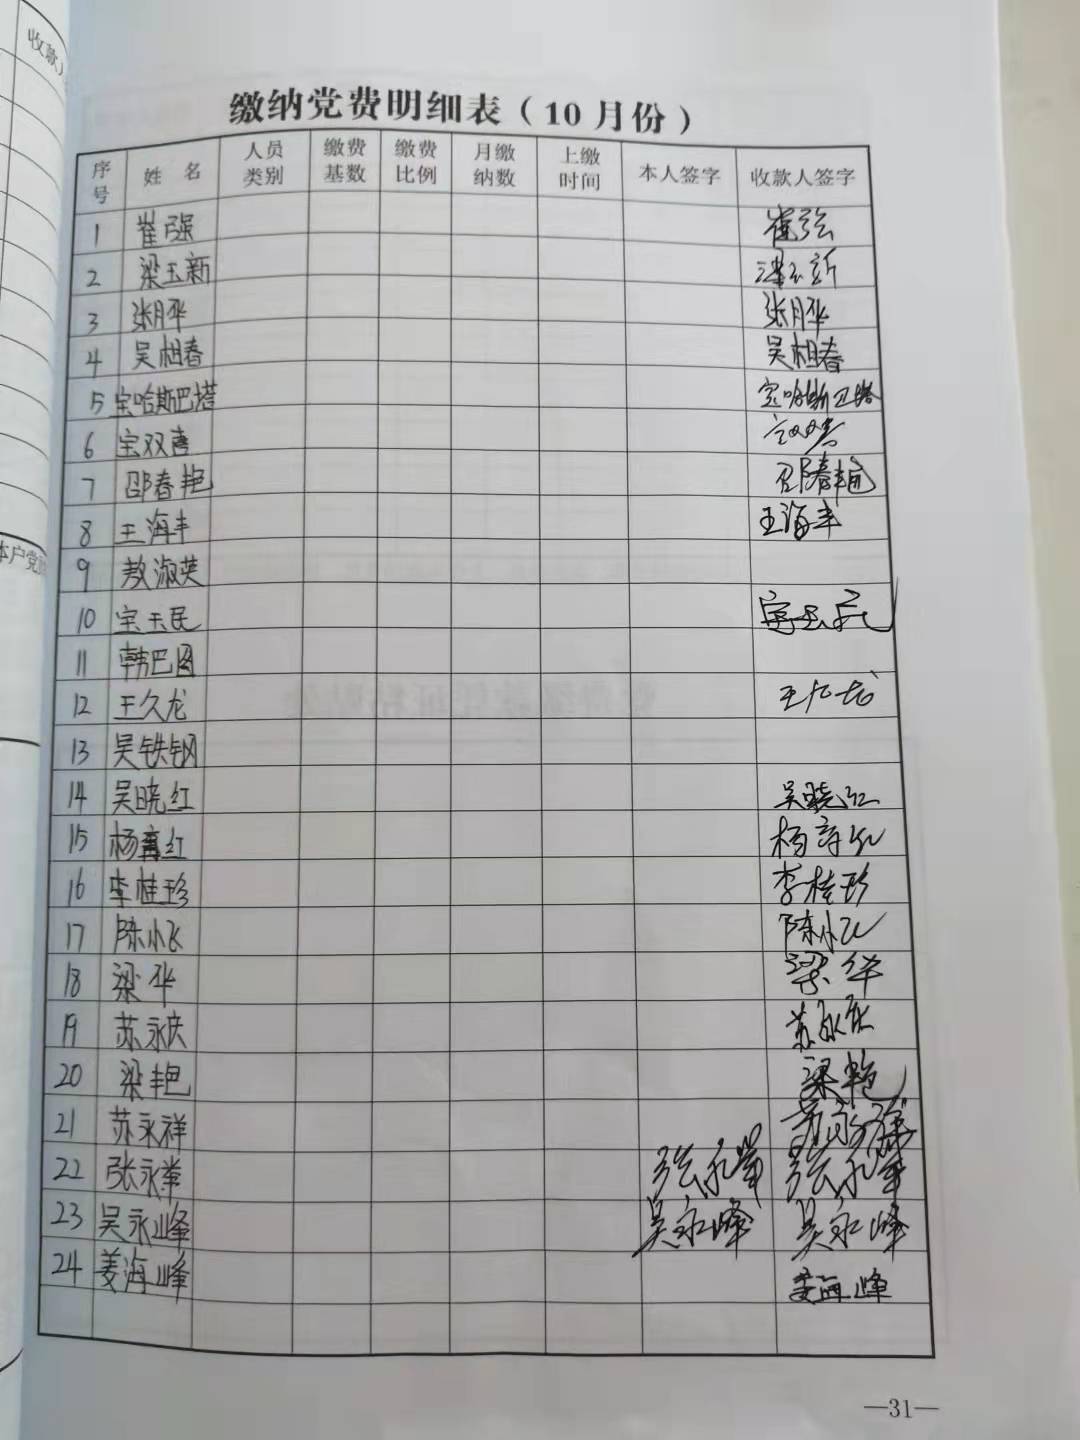 收款人
缴纳党费明细表（10月份）
序号 姓名 人员类别 缴费基数 缴费比例 月缴纳数 上缴时间 本人签字 收款人签字
1 崔强 崔强
2 梁玉新 梁玉新
3 张月华 张月华
4 吴相春 吴相春
5 宝哈斯巴塔 宝哈斯巴塔
6 宝双喜 宝双喜
7 邵春艳 邵春艳
8 王海丰 王海丰
9 敖淑英
10 宝玉民 宝玉民
11 韩巴图
12 王久龙 王久龙
13 吴铁钢
14 吴晓红 吴晓红
15 杨 红 杨 红
16 李桂珍 李桂珍
17 陈小飞 陈小飞
18 梁华 梁华
19 苏永庆 苏永庆
20 梁艳 梁艳
21 苏永祥 苏永祥
22 张永举 张永举 张永举
23 吴永峰 吴永峰 吴永峰
24 姜海峰 姜海峰
—31—